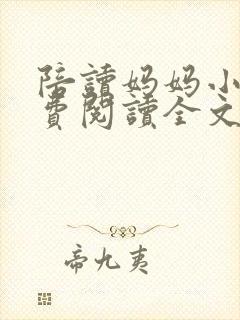 陪讀妈妈小
費閱讀全文
帝九夷